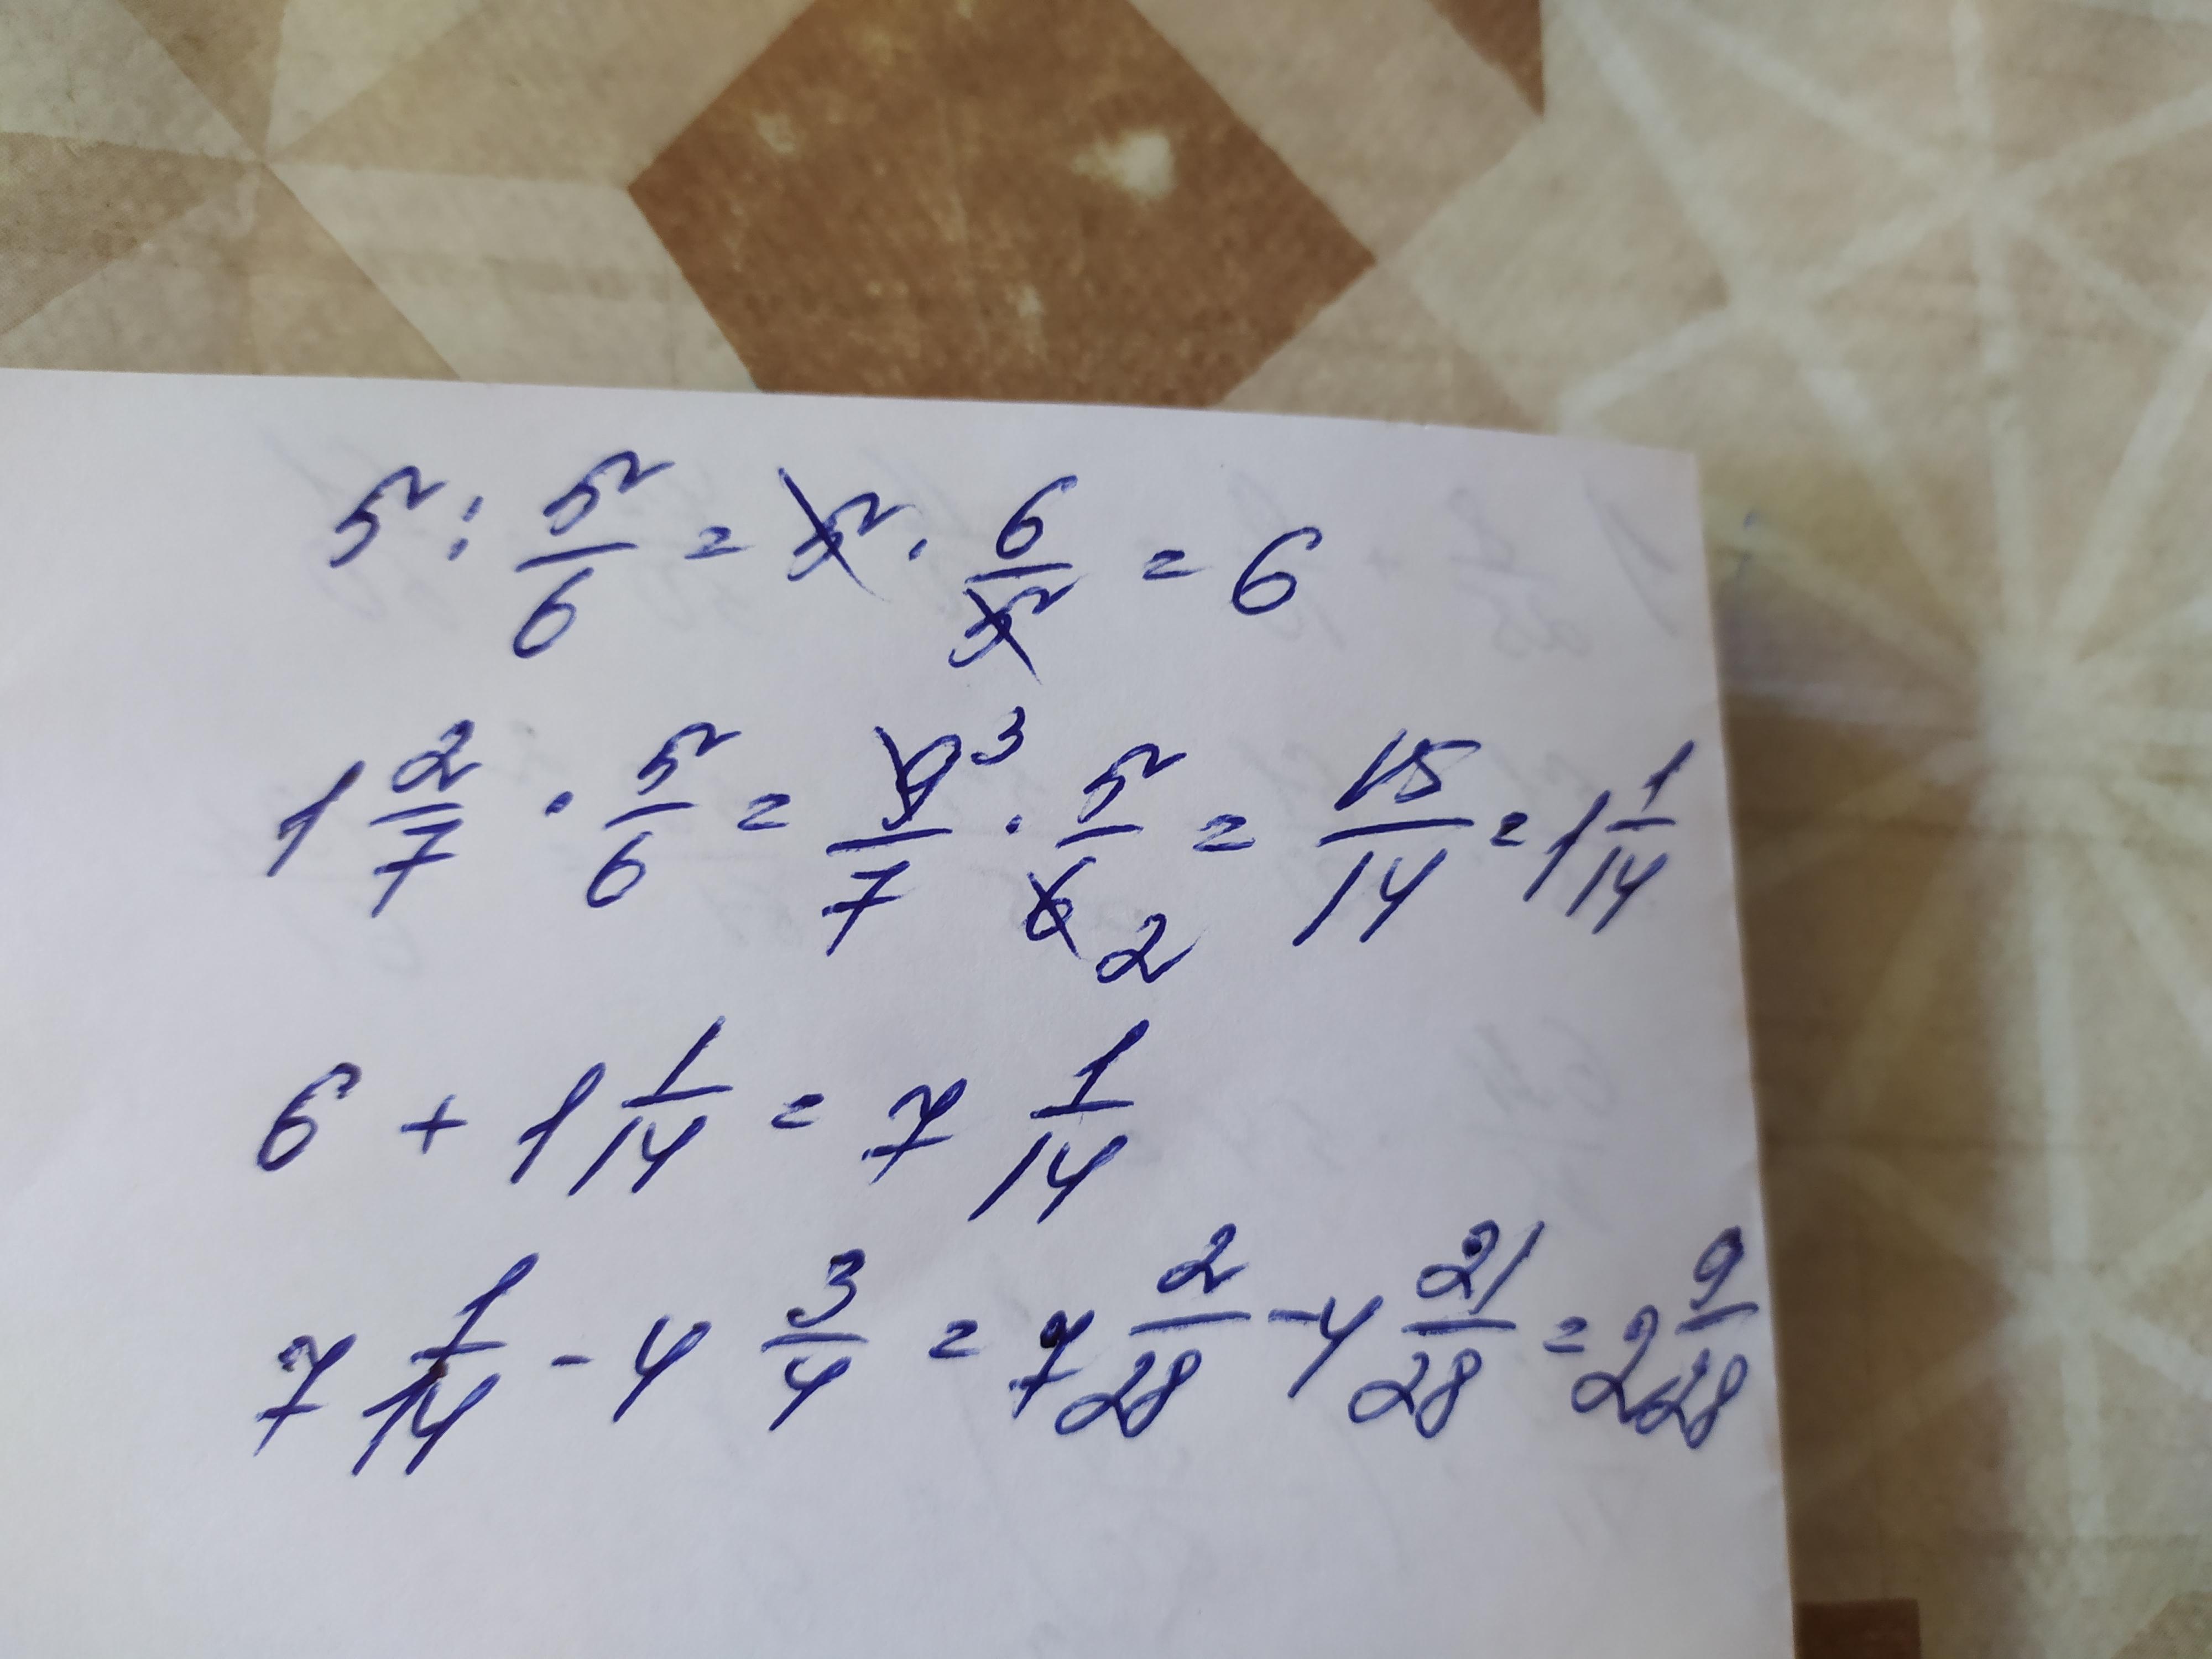 5 : 5/6 = 5 · 6/5 = 6
1 2/7 · 5/6 = 9³/7 · 5/6 2 = 15/14 = 1 1/14
6 + 1 1/14 = 7 1/14
7 1/14 - 4 3/4 = 7 2/28 - 4 21/28 = 2 9/28